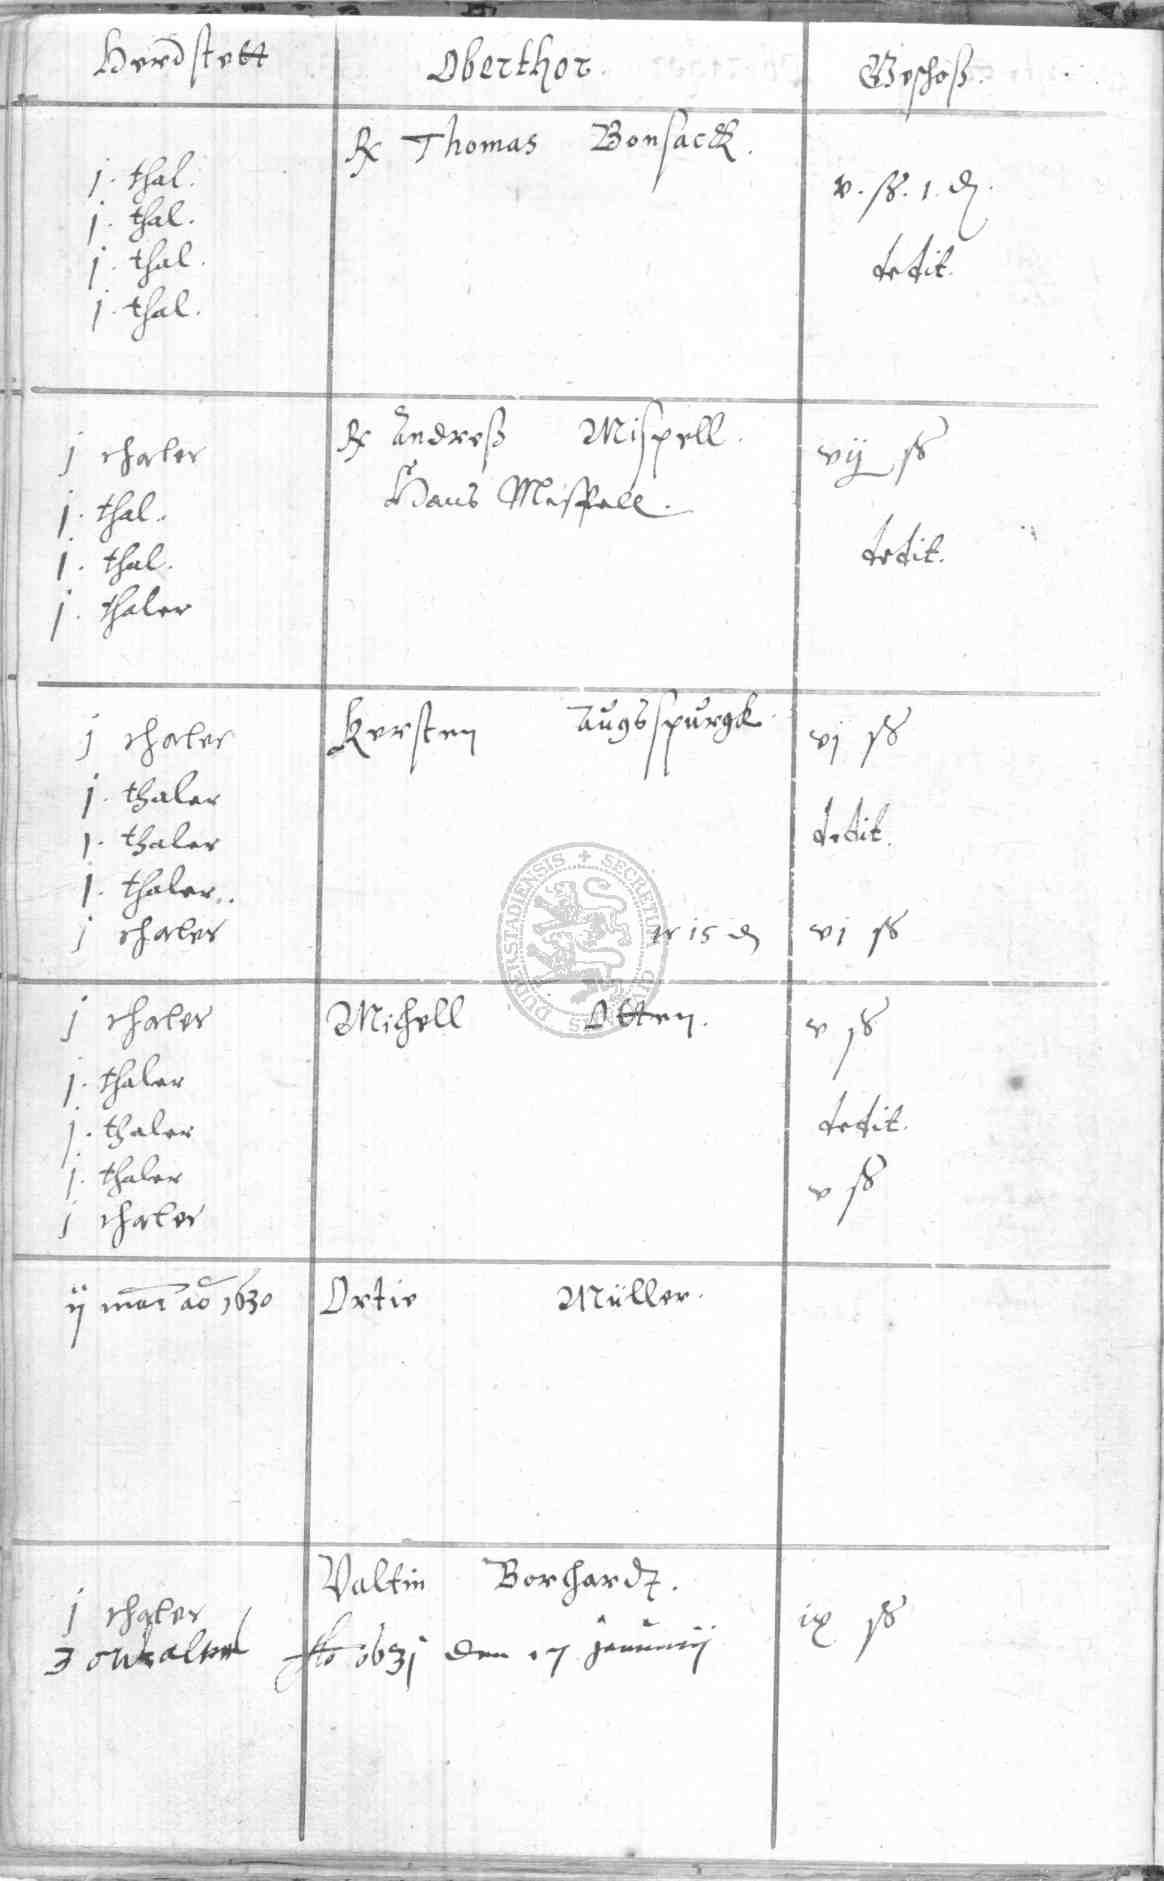 Herdstett Oberthor. Geschoß.
Rx Thomas Bonsack.
j. thal. v. ß. 1. d.
j. thal.
j. thal. dedit.
j. thal.
Rx Andreß Mispell.
j thaler vij ß
Hans Mispell.
j. thal.
j. thal. dedit.
j. thaler
Kersten Augsspurgk.
j thaler vj ß
j. thaler
j. thaler dedit.
j. thaler..
j thaler 15 d vj ß
SECRETUM DUDERSTADIENSIS
j thaler Michell Otten. v ß
j. thaler
j. thaler dedit.
j. thaler v ß
j thaler
ij mar ao 1630 Ortie Müller.
Valtin Borchardt.
j thaler ix ß
3 1631 den 17 januarij